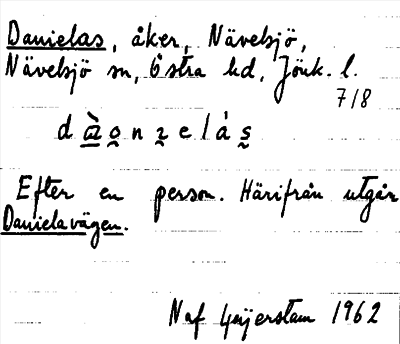 Danielas, åker, Nävelsjö,
Nävelsjö sn, Östra hd, Jönk. l.
7/8
Efter en person. Härifrån utgår
Danielavägen.
Naf Geijerstam 1962